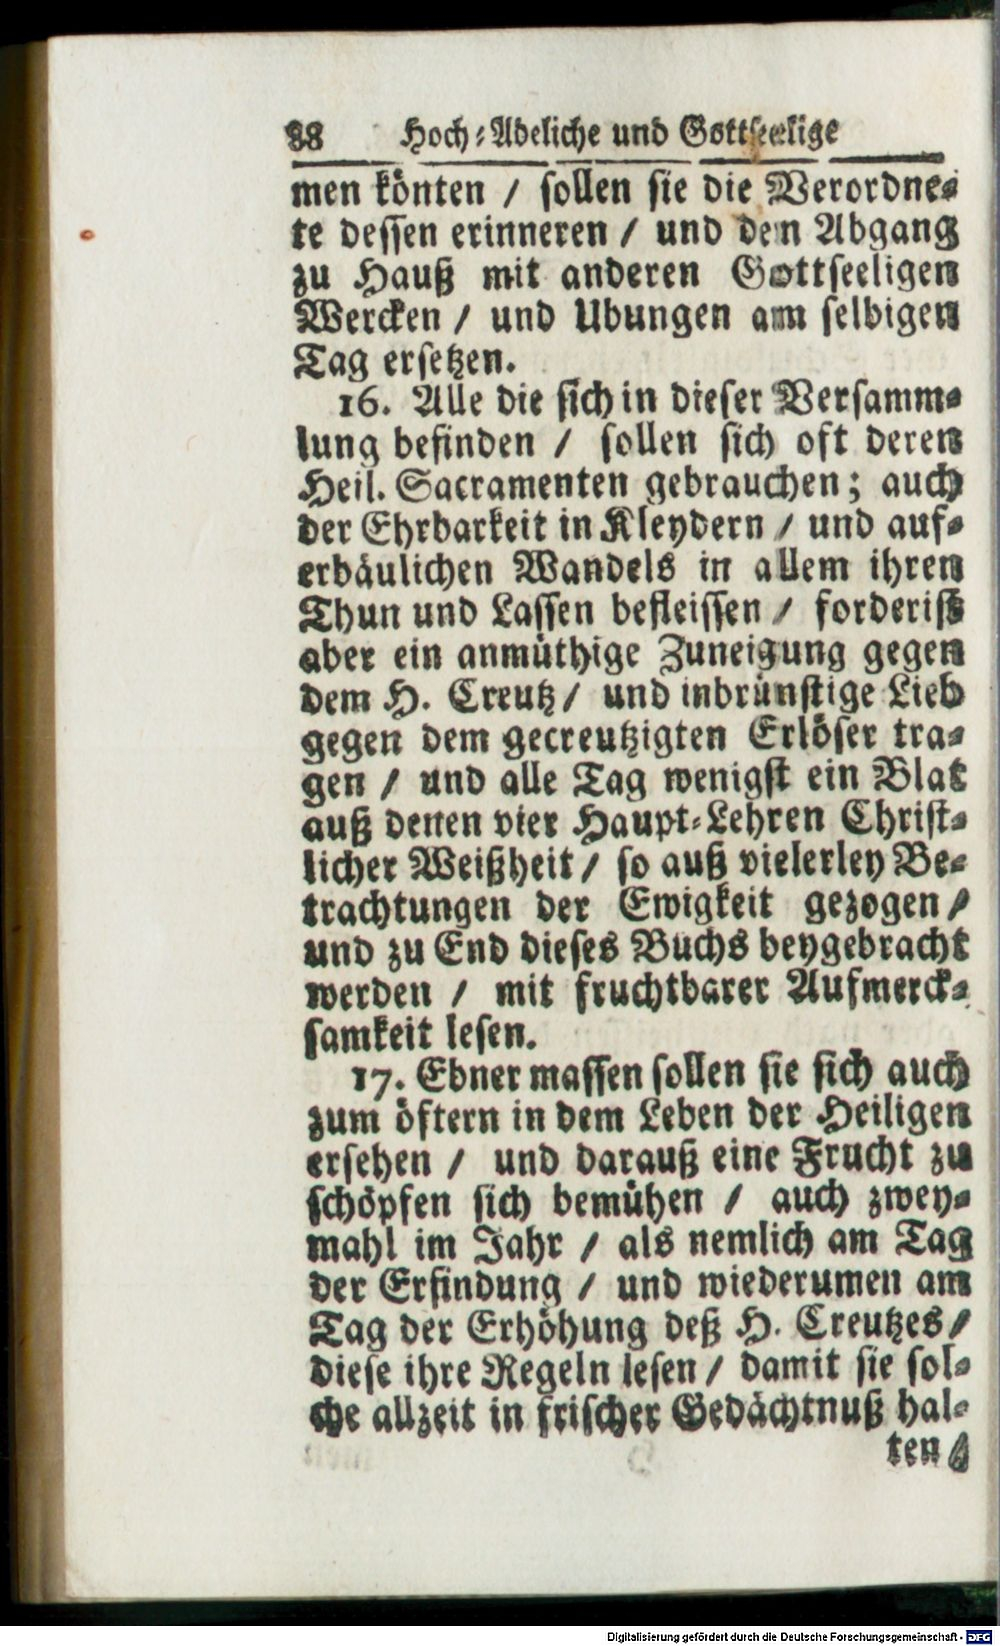 88 Hoch-Adeliche und Gottseelige
men könten / sollen sie die Verordne-
te dessen erinneren / und den Abgang
zu Hauß mit anderen Gottseeligen
Wercken / und Ubungen am selbigen
Tag ersetzen.
16. Alle die sich in dieser Versamm-
lung befinden / sollen sich oft deren
Heil. Sacramenten gebrauchen; auch
der Ehrbarkeit in Kleydern / und auf-
erbäulichen Wandels in allem ihren
Thun und Lassen befleissen / forderist
aber ein anmüthige Zuneigung gegen
dem H. Creutz / und inbrünstige Lieb
gegen dem gecreutzigten Erlöser tra-
gen / und alle Tag wenigst ein Blat
auß denen vier Haupt-Lehren Christ-
licher Weißheit / so auß vielerley Be-
trachtungen der Ewigkeit gezogen /
und zu End dieses Buchs beygebracht
werden / mit fruchtbarer Aufmerck-
samkeit lesen.
17. Ebner massen sollen sie sich auch
zum öftern in dem Leben der Heiligen
ersehen / und darauß eine Frucht zu
schöpfen sich bemühen / auch zwey-
mahl im Jahr / als nemlich am Tag
der Erfindung / und wiederumen am
Tag der Erhöhung deß H. Creutzes /
diese ihre Regeln lesen / damit sie sol-
che allzeit in frischer Gedächtnuß hal-
ten /
Digitalisierung gefördert durch die Deutsche Forschungsgemeinschaft - DFG